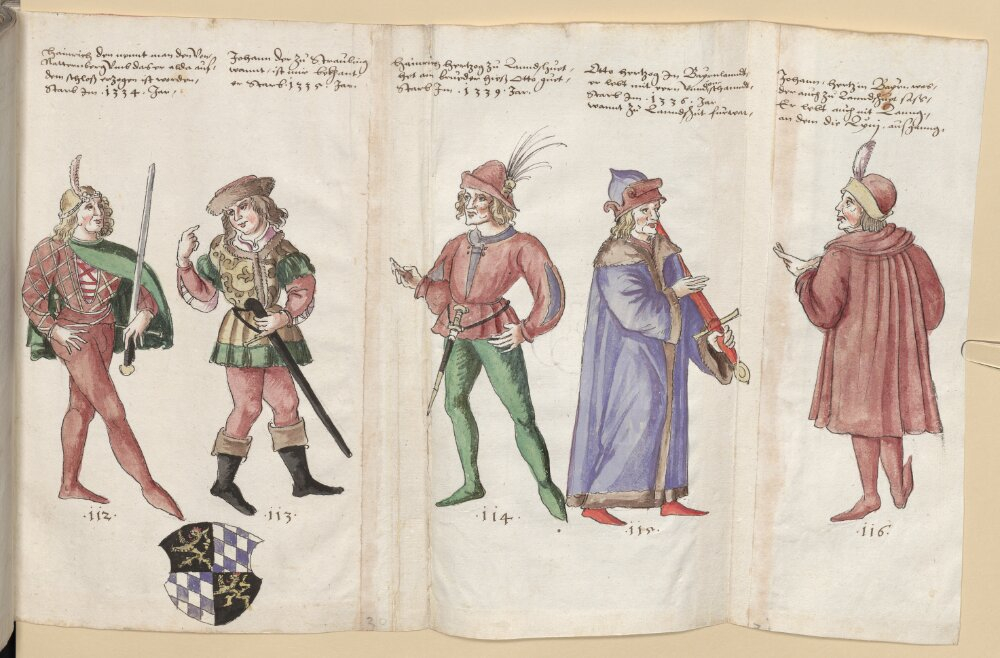 Hainrich den nennt man den von
Natternberg, umb das er alda auf
dem schloss erzogen ist worden,
Starb Im . 1334 . Jar .
Johann der zu Straubing
wannt, ist mir bekhant
er Starb 1335 . Jar .
Hainrich Hertzog zu Lanndshuet,
Het ain bruder hiess Otto guet,
Starb Im . 1339 . Jar .
Otto Hertzog In Bayrnlanndt,
er lebt mit
Starb Im . 1336 . Jar
wannt zu Lanndshut fürwar,
Johanns Hertz In Bayrn was,
der auch zu Lanndshuet sass,
Er lebt auch nit lanng,
an dem die
.112.
.113.
.114.
.115.
.116.